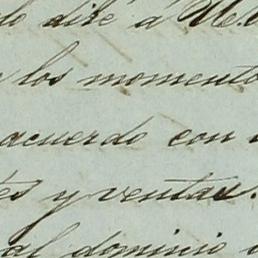 dire à
los momento
acuerdo con
y ventas.
al dominio